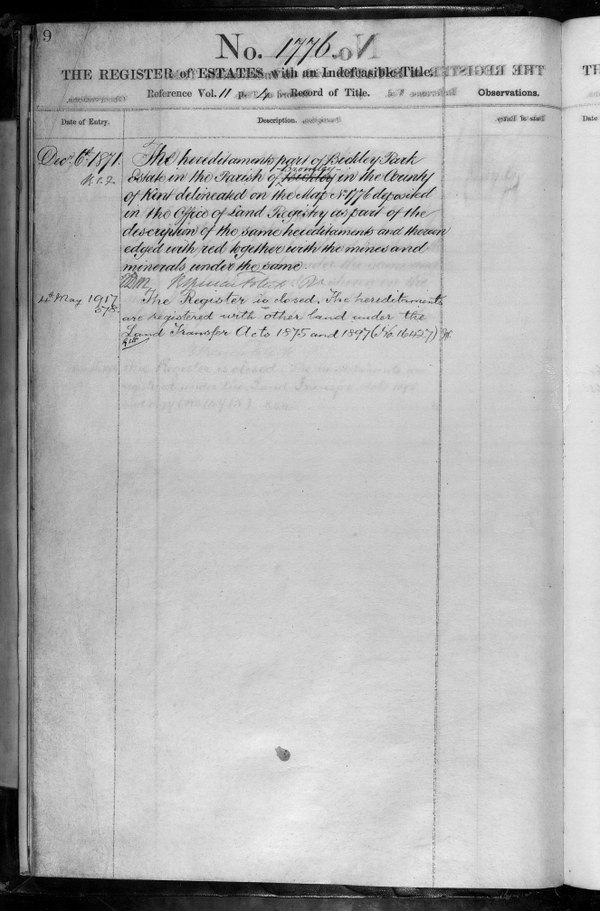 9
No. 1776.
THE REGISTER of ESTATES with an Indefeasible Title.
Reference Vol. 11 p. 4 Record of Title.
Observations.
Date of Entry.
Description.
Decr. 6th 1871.
The hereditaments part of Bickley Park
Bromley
Estate in the Parish of Bickley in the County
of Kent delineated on the Map No 1776 deposited
in the Office of Land Registry as part of the
description of the same hereditaments and thereon
edged with red together with the mines and
minerals under the same
4th May 1917
The Register is closed. The hereditaments
are registered with other land under the
Land Transfer Acts 1875 and 1897 (No. 16427)
TH
Date